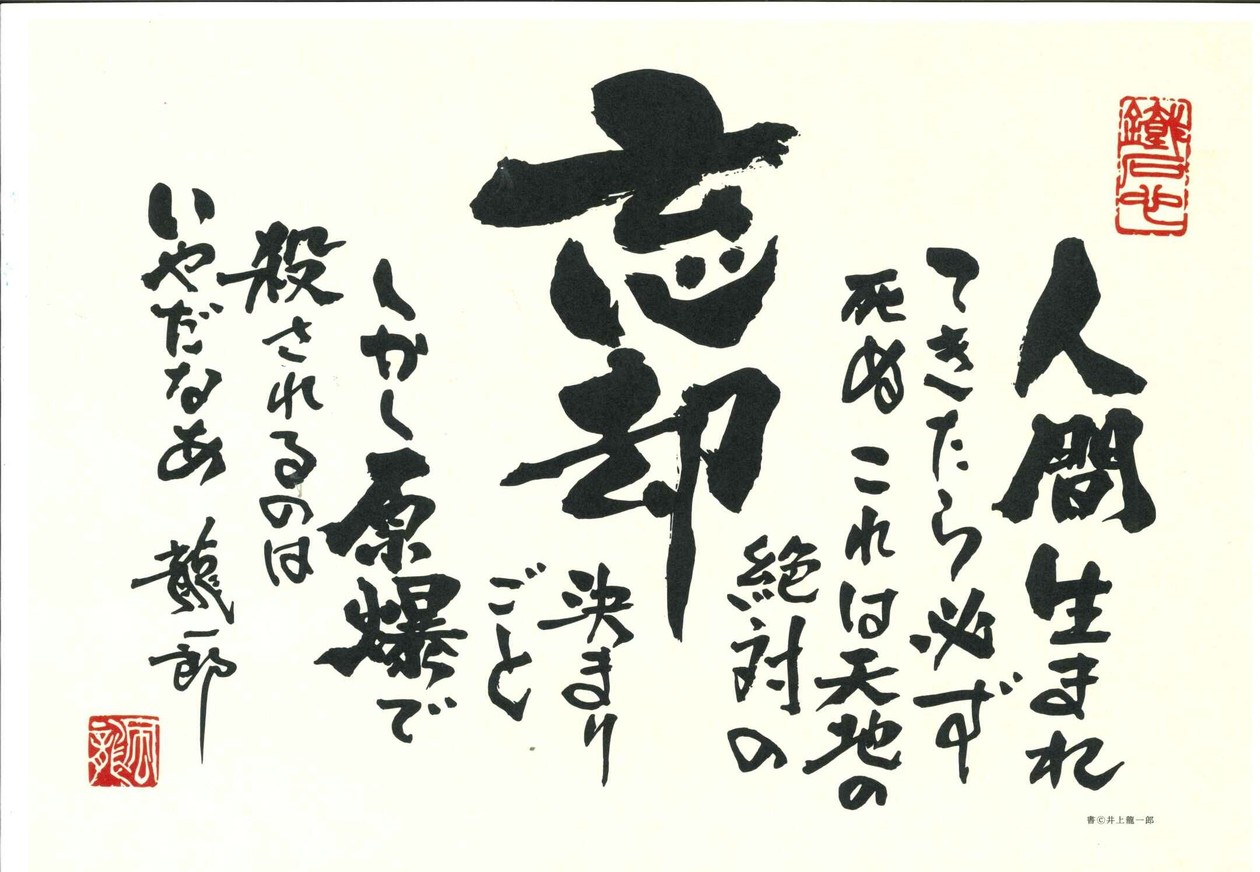 人間生まれ
てきたら必ず
死ぬ これは天地の
絶対の
忘却
決まり
ごと
しかし原爆で
殺されるのは
いやだなあ 龍一郎
書©井上龍一郎